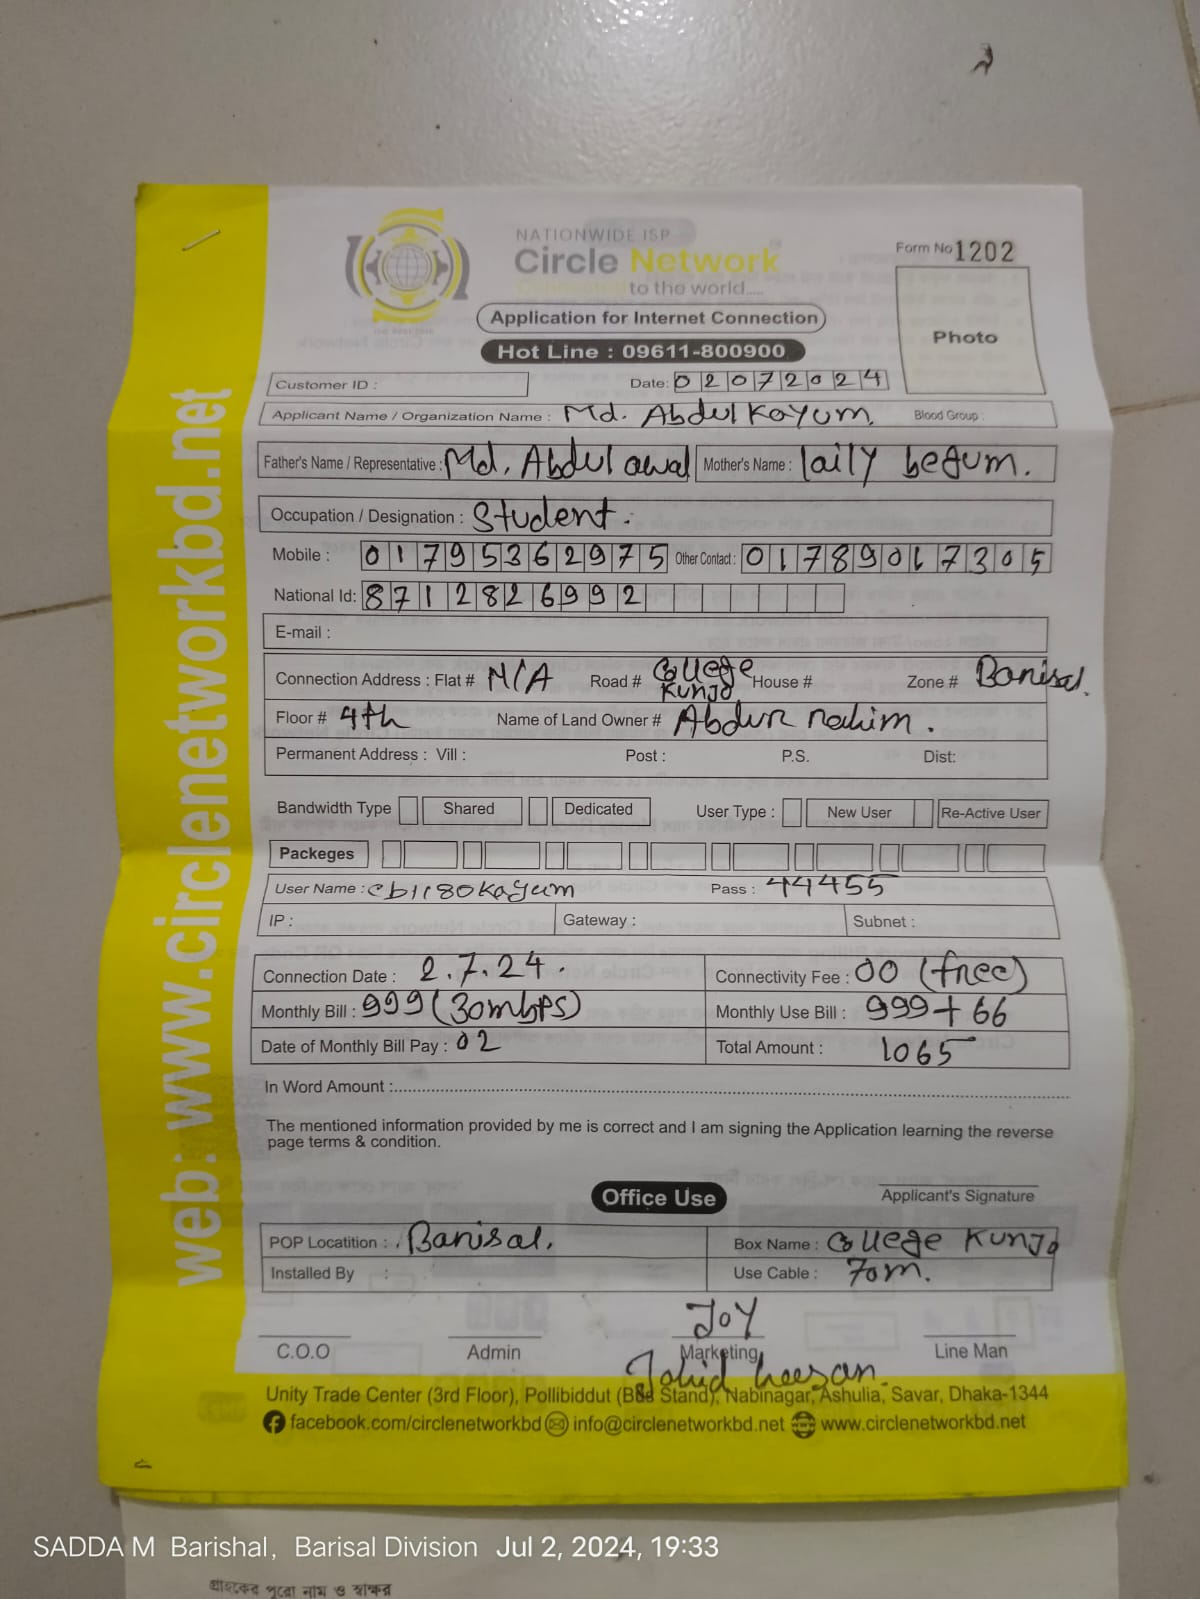 NATIONWIDE ISP
Circle Network
Connected to the world.....
Form No 1202
Application for Internet Connection
Hot Line : 09611-800900
Photo
Customer ID :
Date: 02072024
Applicant Name / Organization Name : Md. Abdul Kayum. Blood Group :
Father's Name / Representative : Md. Abdul awal Mother's Name : laily begum.
Occupation / Designation : Student.
Mobile : 01795362975 Other Contact : 01789017305
National Id: 8712826992
E-mail :
Connection Address : Flat # N/A Road # College Kunjo House # Zone # Barisal.
Floor # 4th Name of Land Owner # Abdur rahim.
Permanent Address : Vill : Post : P.S. Dist:
Bandwidth Type Shared Dedicated User Type : New User Re-Active User
Packeges
User Name : cb1180kayum Pass : 44455
IP : Gateway : Subnet :
Connection Date : 2.7.24. Connectivity Fee : 00 (free)
Monthly Bill : 999 (30mbps) Monthly Use Bill : 999+66
Date of Monthly Bill Pay : 02 Total Amount : 1065
In Word Amount :
The mentioned information provided by me is correct and I am signing the Application learning the reverse
page terms & condition.
Applicant's Signature
Office Use
POP Locatition : Barisal. Box Name : College Kunjo
Installed By : Use Cable : 70m.
JOY
C.O.O Admin Marketing Line Man
Jahid hassan.
Unity Trade Center (3rd Floor), Pollibiddut (Bus Stand), Nabinagar, Ashulia, Savar, Dhaka-1344
facebook.com/circlenetworkbd info@circlenetworkbd.net www.circlenetworkbd.net
web: www.circlenetworkbd.net
SADDA M Barishal, Barisal Division Jul 2, 2024, 19:33
গ্রাহকের পুরো নাম ও স্বাক্ষর